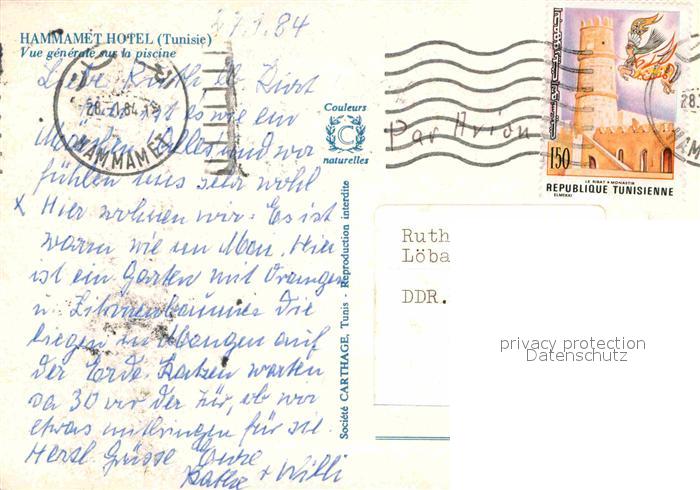 27.1.84
HAMMAMET HOTEL (Tunisie)
Vue générale sur la piscine
Liebe Ruth lb
hier ist es wie ein
und wir
fühlen uns sehr wohl
x Hier wohnen wir. Es ist
warm wie im Mai. Hier
ist ein Garten mit Orangen
u. Zitronenbäumen die
liegen in Mengen auf
der Erde. Katzen warten
da 30 vor der Tür, ob wir
etwas mitbringen für sie.
Herzl. Grüsse Eure
Käthe + Willi
28.1.84
HAMMAMET
Couleurs
C
naturelles
Société CARTHAGE, Tunis - Reproduction interdite
Par Avion
150
LE RIBAT A MONASTIR
REPUBLIQUE TUNISIENNE
ELMEKKI
28.
Ruth
Löba
DDR.
privacy protection
Datenschutz